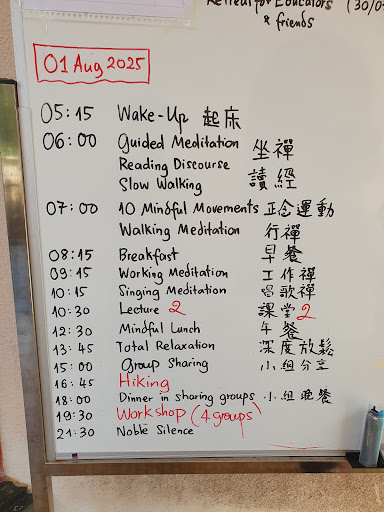 Retreat for Educators (30/0
& friends
01 Aug 2025
05:15 Wake-Up 起床
06:00 Guided Meditation 坐禪
Reading Discourse 讀經
Slow Walking
07:00 10 Mindful Movements 正念運動
Walking Meditation 行禪
08:15 Breakfast 早餐
09:15 Working Meditation 工作禪
10:15 Singing Meditation 唱歌禪
10:30 Lecture 2 課堂2
12:30 Mindful Lunch 午餐
13:45 Total Relaxation 深度放鬆
15:00 Group Sharing 小組分享
16:45 Hiking
18:00 Dinner in sharing groups 小組晚餐
19:30 Workshop (4 groups)
21:30 Noble Silence